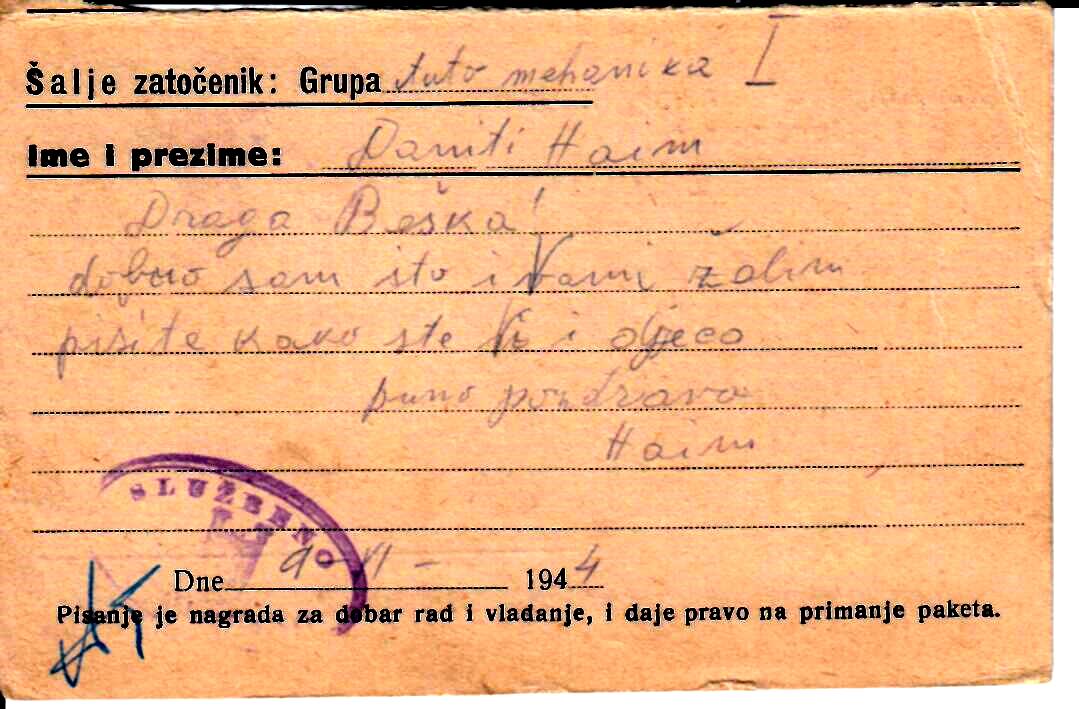 Šalje zatočenik: Grupa Auto mehanika I
Ime i prezime: Daniti Haim
Draga Beška!
dobro sam što i Vami želim
pišite kako ste Vi i djeca
puno pozdrava
Haim
SLUŽBENO
Dne 9-VI- 1944
Pisanje je nagrada za dobar rad i vladanje, i daje pravo na primanje paketa.